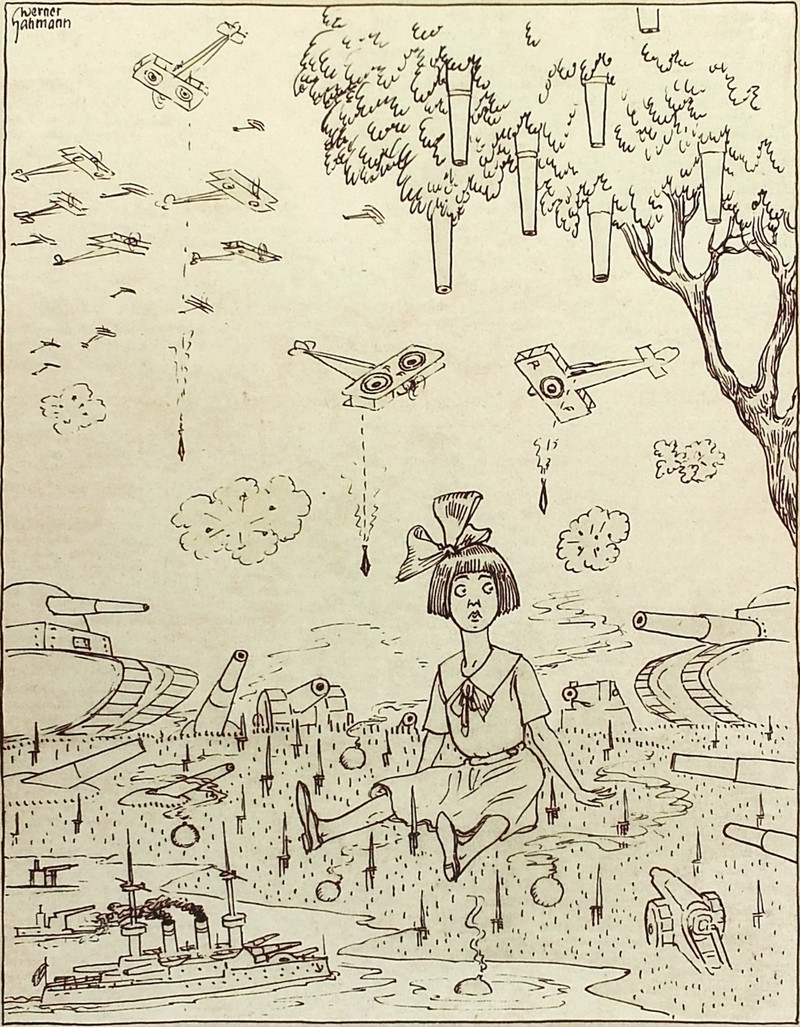 werner
hahmann